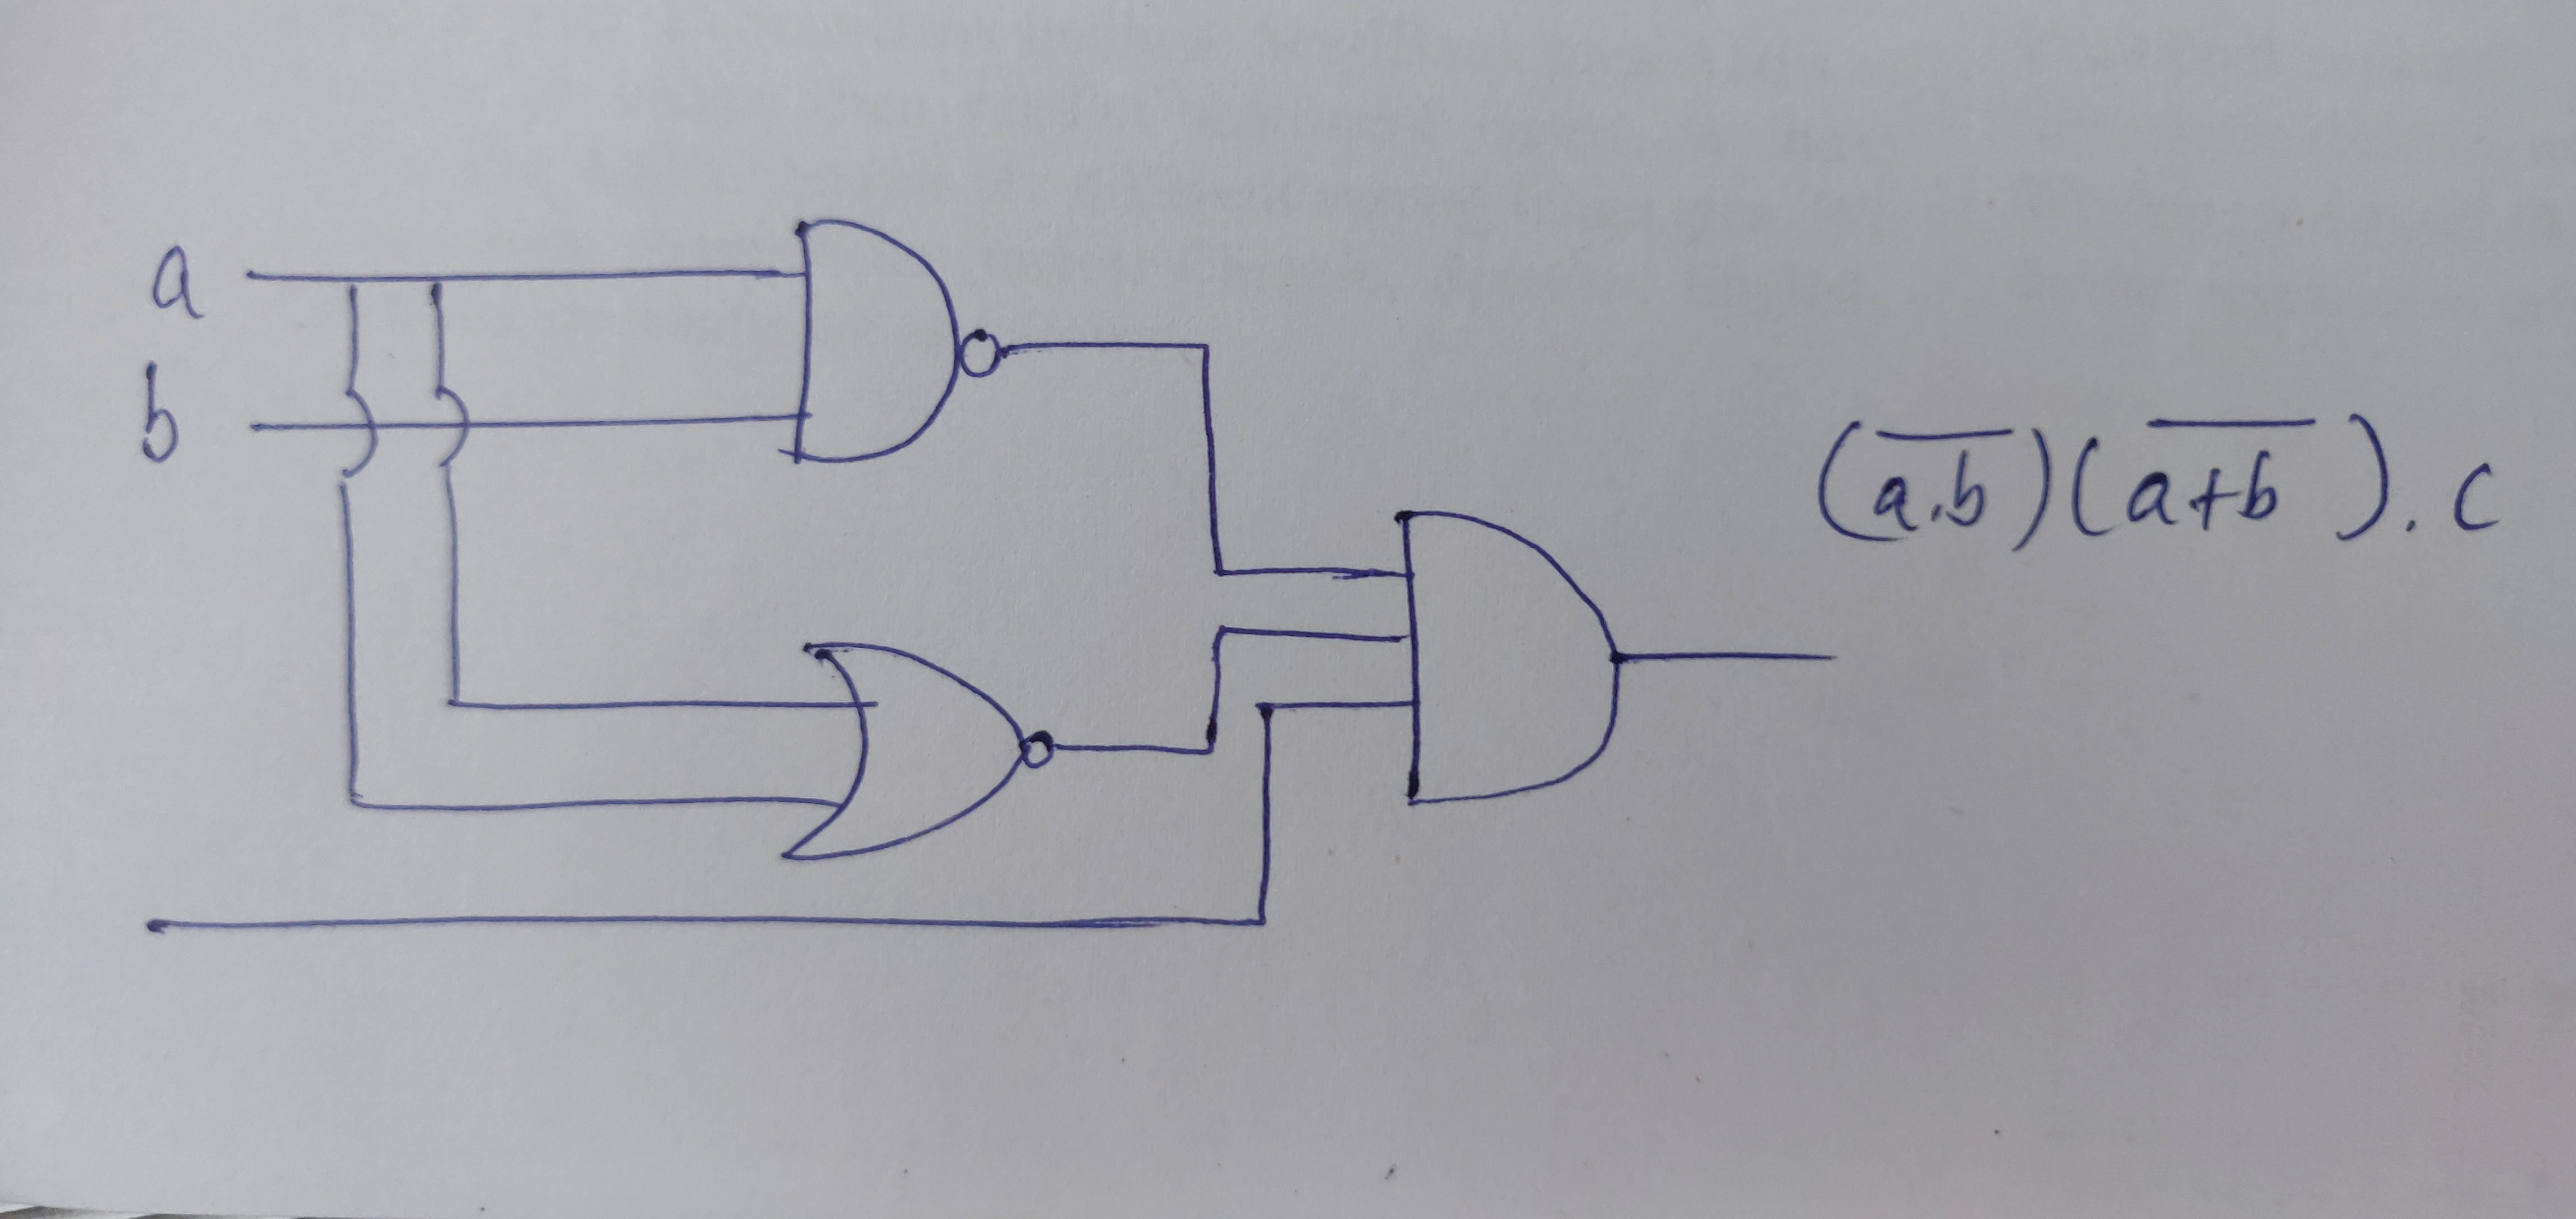 a
b
(a̅.̅b̅)(a̅+̅b̅).c